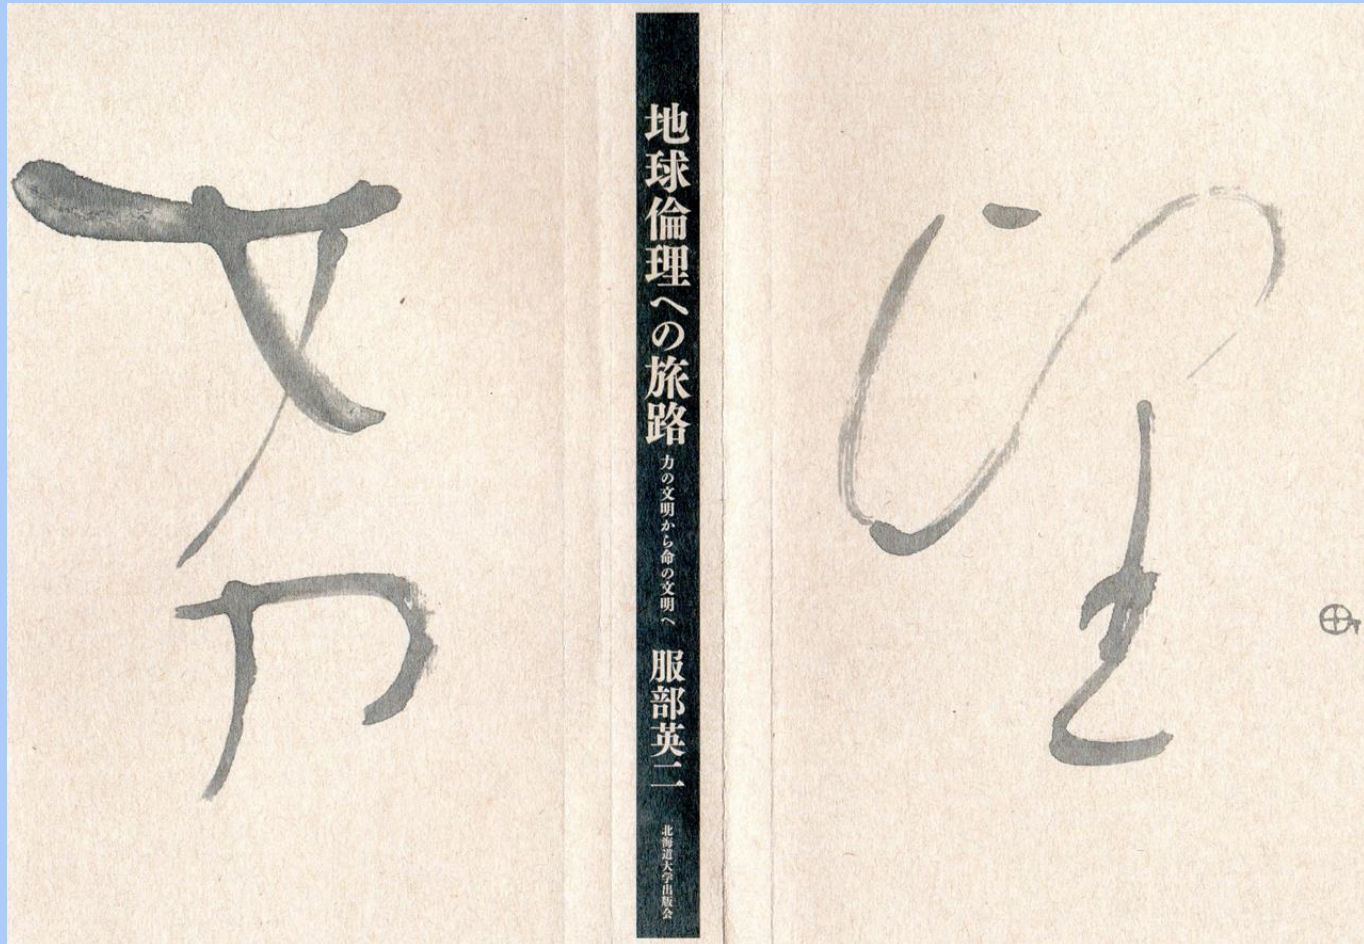 希
地球倫理への旅路
力の文明から命の文明へ
服部英二
北海道大学出版会
望